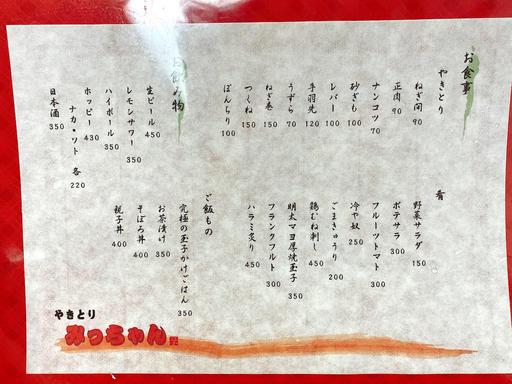 お食事
やきとり
ねぎ間 90
正肉 90
ナンコツ 70
砂ぎも 100
レバー 100
手羽先 120
うずら 70
ねぎ巻 150
つくね 150
ぼんちり 100
肴
野菜サラダ 150
ポテサラ 300
フルーツトマト 300
冷や奴 250
ごまきゅうり 200
鶏むね刺し 450
明太マヨ厚焼玉子 350
フランクフルト 300
ハラミ炙り 450
お飲み物
生ビール 450
レモンサワー 350
ハイボール 350
ホッピー 430
ナカ・ソト 各220
日本酒 350
ご飯もの
究極の玉子かけごはん 350
お茶漬け 350
そぼろ丼 400
親子丼 400
やきとり
みっちゃん